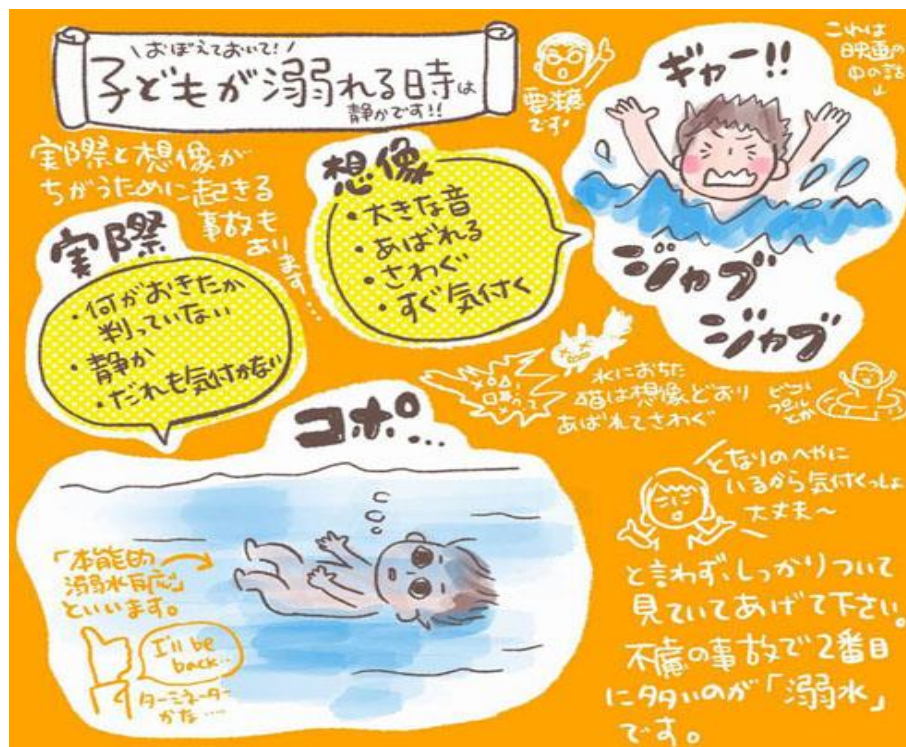 \おぼえておいて!/
子どもが溺れる時は
静かです!!
要注意
です!
ギャー!!
これは
映画の
中の話
実際と想像が
ちがうために起きる
事故も
あります…
想像
・大きな音
・あばれる
・さわぐ
・すぐ気付く
実際
・何がおきたか
判っていない
・静か
・だれも気付かない
ジャブ
ジャブ
水におちた
猫は想像どおり
あばれてさわぐ
プール
とか
コポ…
「本能的
溺水反応」
といいます。
I'll be
back..
ターミネーター
かな….
となりのへやに
いるから気付くっしょ
大丈夫〜
と言わず、しっかりついて
見ていてあげて下さい。
不慮の事故で2番目
に多いのが「溺水」
です。